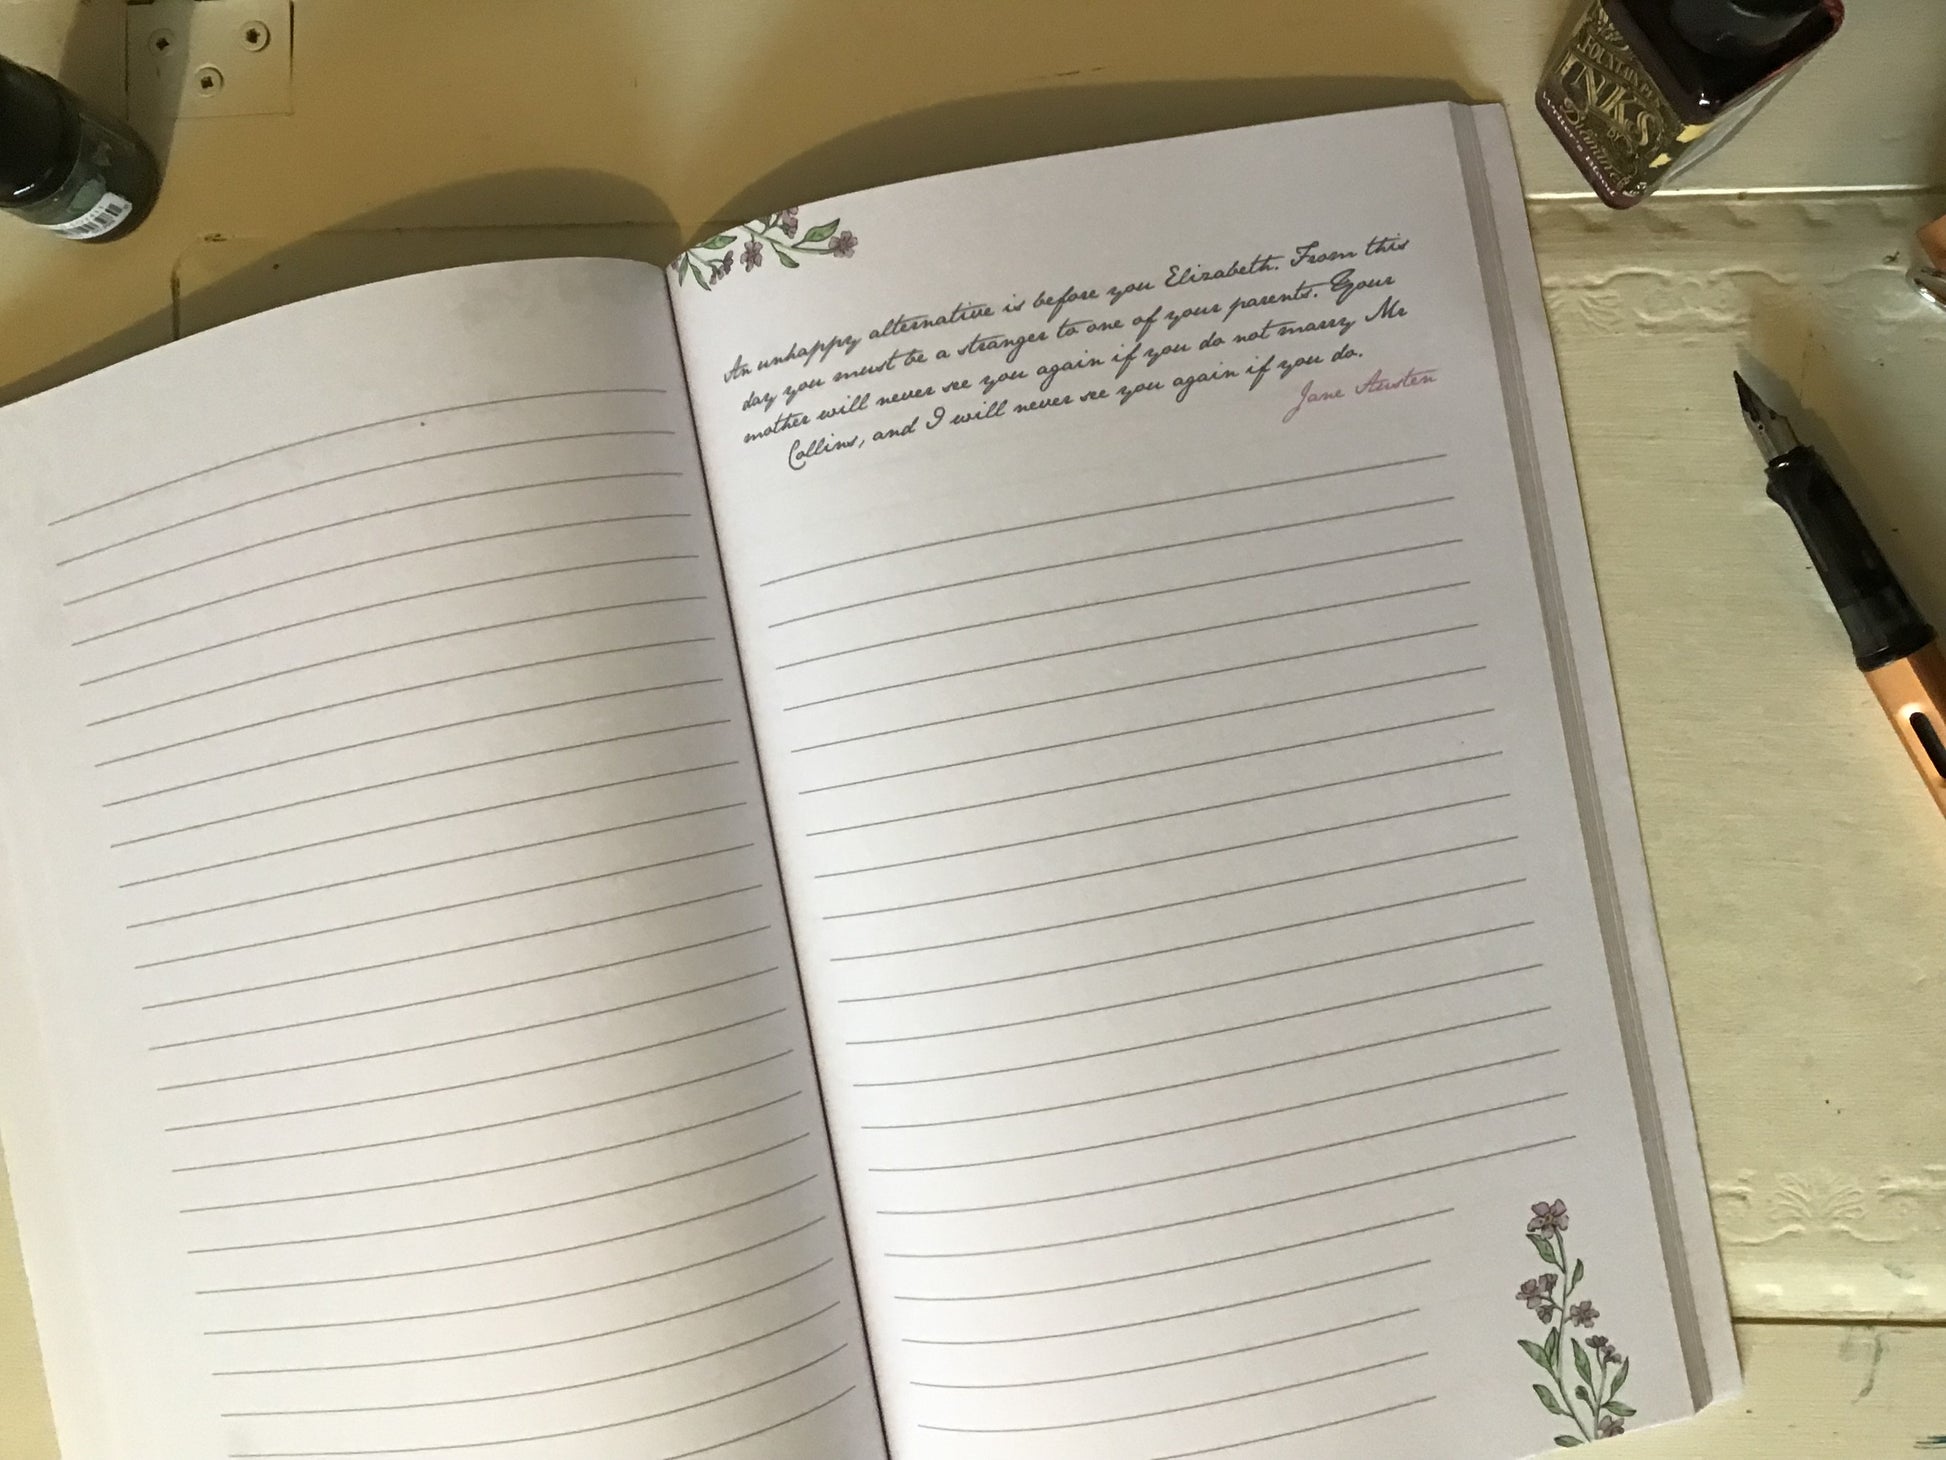 FOUNTAIN PEN
INKS
BY
Diamine
Writer's Blood
An unhappy alternative is before you Elizabeth. From this
day you must be a stranger to one of your parents. Your
mother will never see you again if you do not marry Mr
Collins, and I will never see you again if you do.
Jane Austen